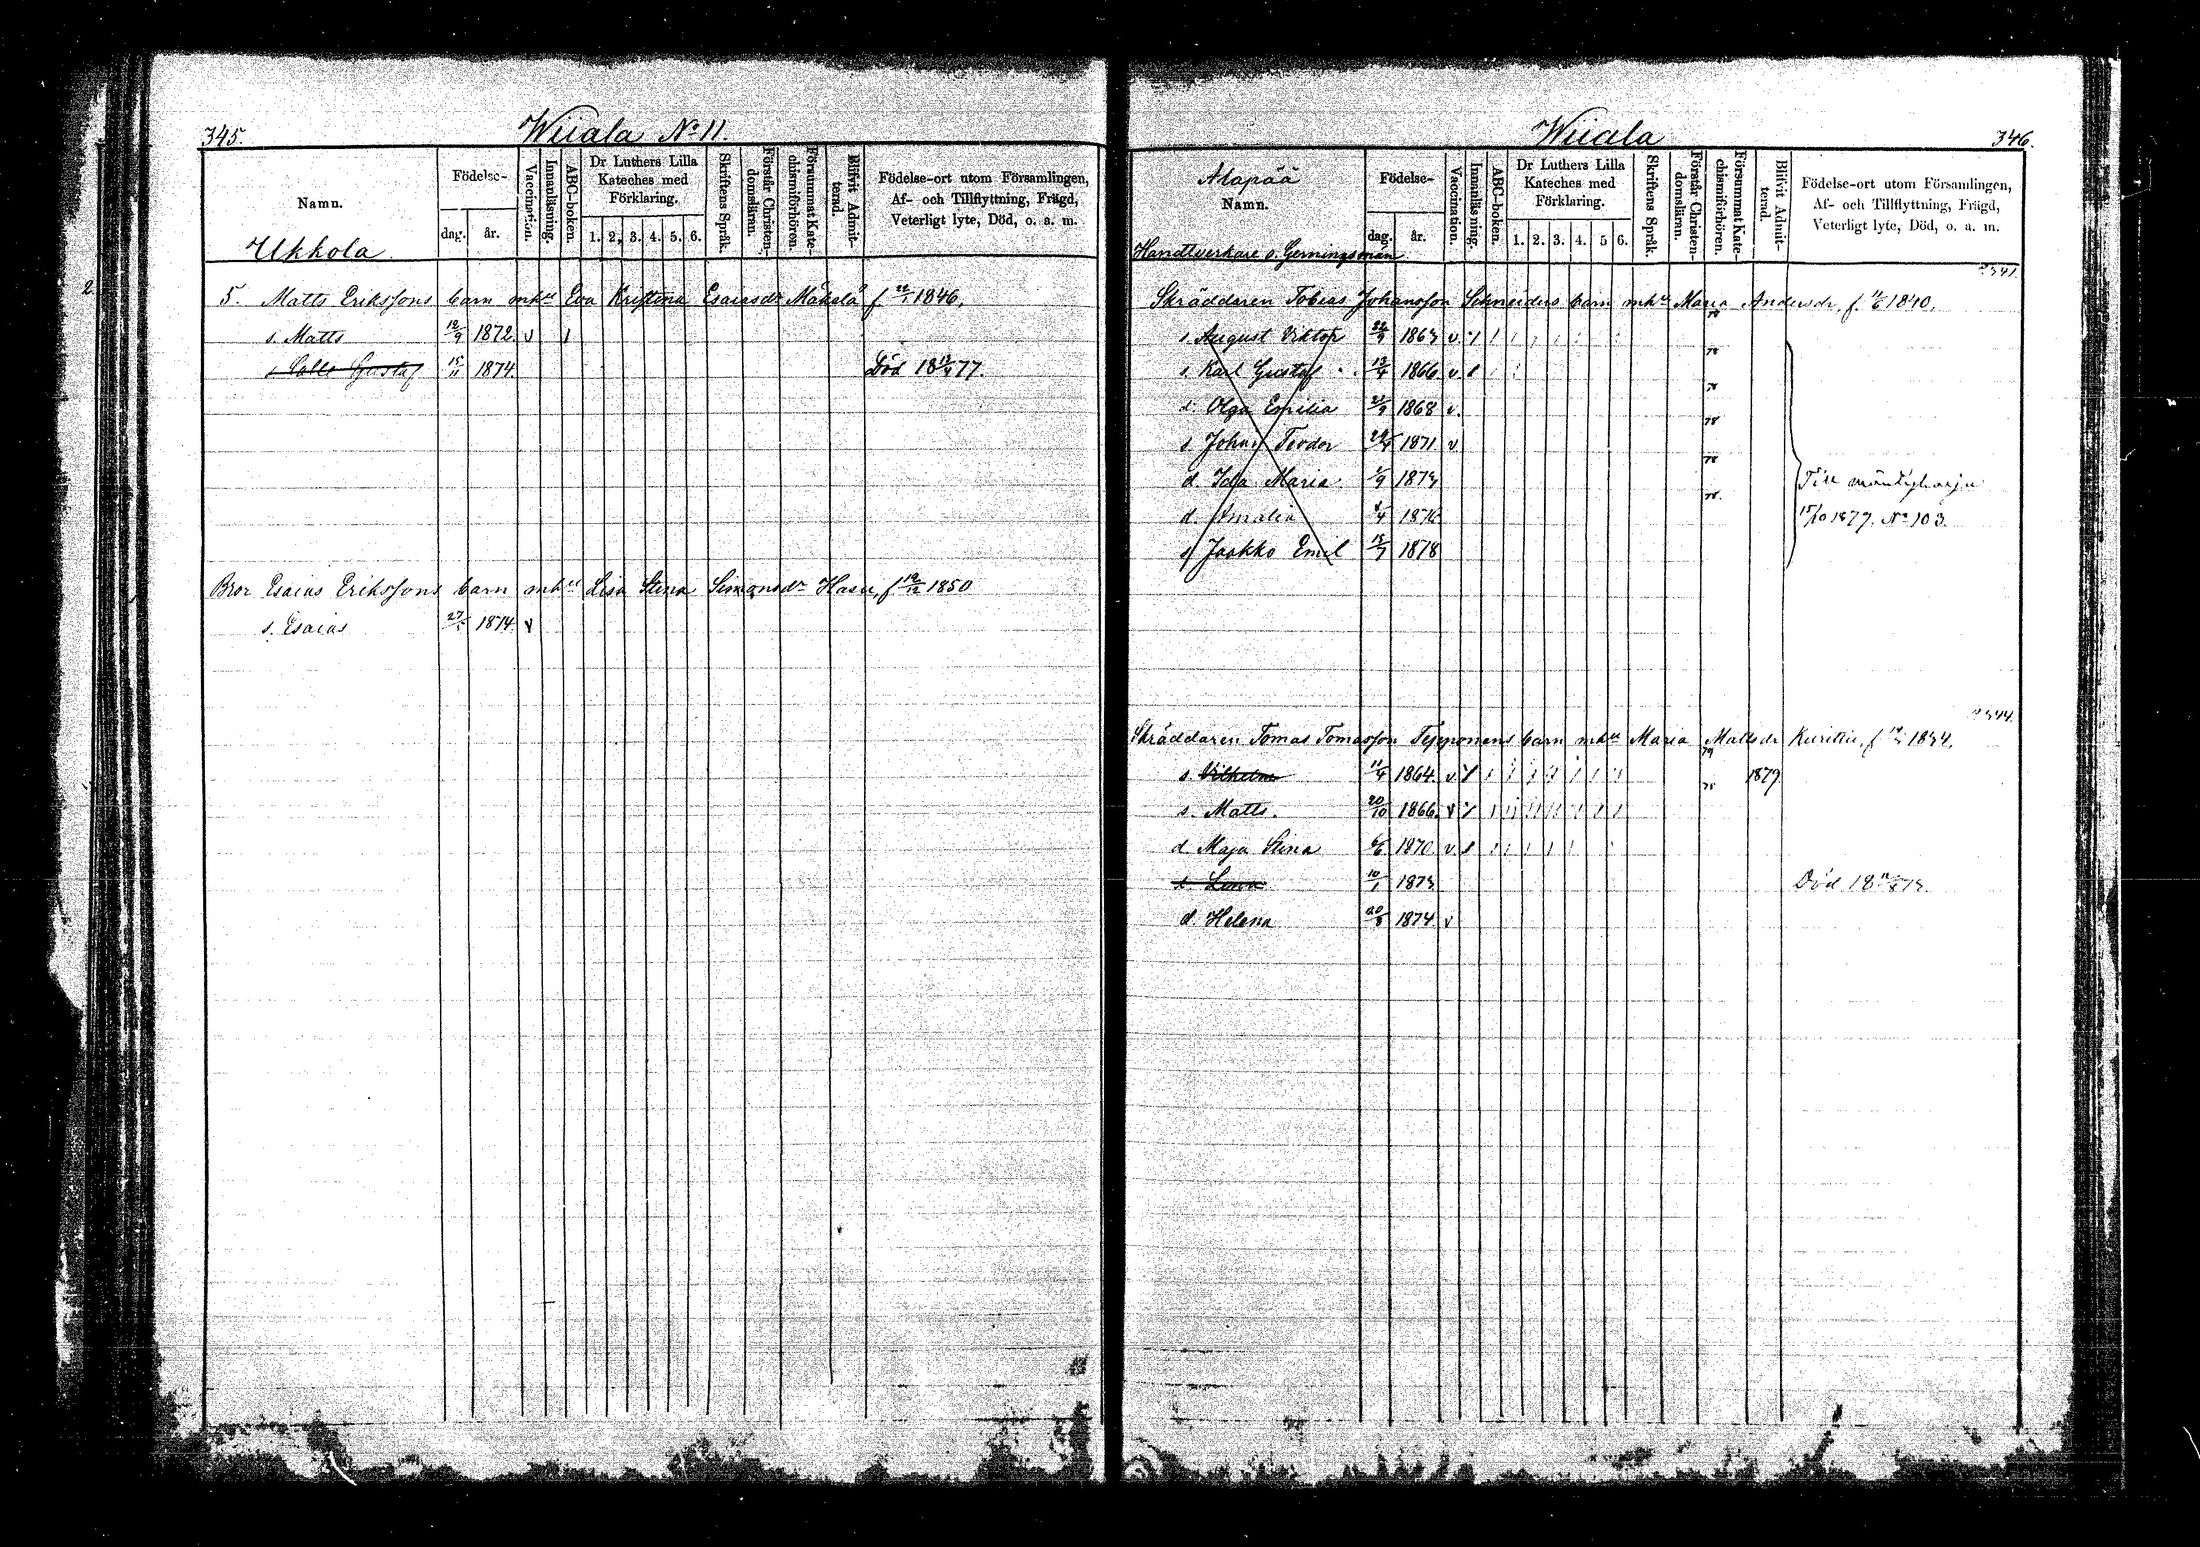 345.
Wiiala No 11.
Namn.
Födelse-
dag. år.
Vaccination.
Innanläsning.
ABC-boken.
Dr Luthers Lilla Kateches med Förklaring.
1. 2. 3. 4. 5. 6.
Skriftens Språk.
Förstår Christen-domsläran.
Försummat Kate-chismiförhören.
Blifvit Admit-terad.
Födelse-ort utom Församlingen,
Af- och Tillflyttning, Frägd,
Veterligt lyte, Död, o. a. m.
Ukkola
5. Matts Erikssons barn m hu Eva Kristina Esaiasdr Mäkelä f 1846,
s. Matts 12/9 1872 v 1
s. Kalle Gustaf 15/11 1874. Död 18 77.
Bror Esaias Erikssons barn m hu Lisa Stina Simonsdr Hasu, f 19/12 1850
s. Esaias 1874 v
Wiiala
346.
Alapää
Namn.
Födelse-
dag. år.
Vaccination.
Innanläsning.
ABC-boken.
Dr Luthers Lilla Kateches med Förklaring.
1. 2. 3. 4. 5 6.
Skriftens Språk.
Förstår Christen-domslärn.
Försummat Kate-chismiförhören.
Blifvit Admit-terad.
Födelse-ort utom Församlingen,
Af- och Tillflyttning, Frägd,
Veterligt lyte, Död, o. a. m.
Handtverkare o. Gerningsmän
341.
Skräddaren Tobias Johansson Schneiders barn m hu Maria Andersdr, f. 1840,
s. August Viktor 1863 v. 78
s. Karl Gustaf 13/4 1866 v. 78
d. Olga Emilia 1868 v. 78
s. Johan Teodor 1871 v 78
d. Ida Maria 1873 78
d. Amalia 1876 78.
s. Jaakko Emil 1878
Till Mäntyharju
15/10 1879. No 103.
344.
Skräddaren Tomas Tomasson Tepponens barn m hu Maria Mattsdr Kurittu, f 1834,
s. Vilhelm 11/4 1864 v 79 1879
s. Matts. 20/10 1866. v 78
d. Maja Stina 1870 v.
d. Leena 10/1 1873 Död 18 73.
d. Helena 20/8 1874 v